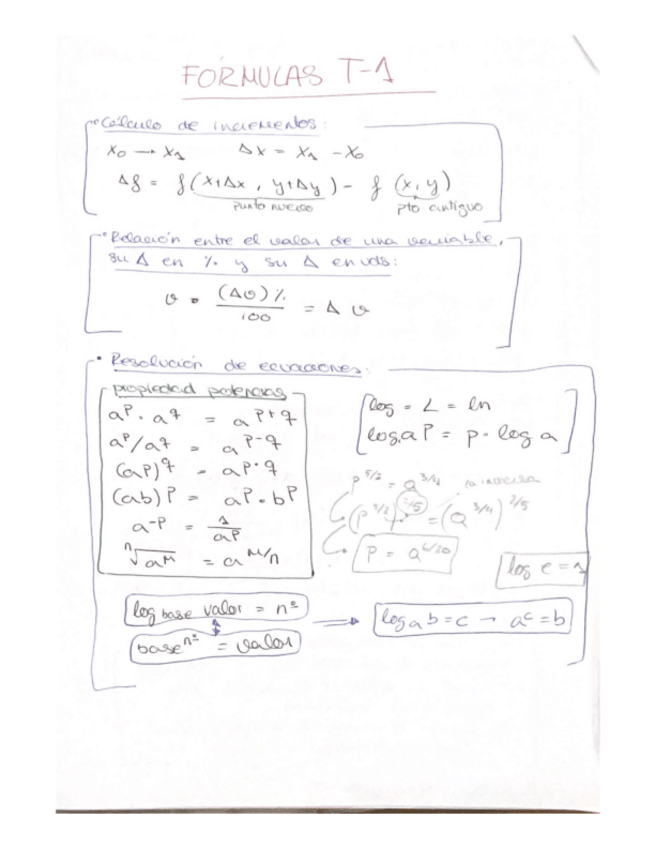 FORMULAS T-1
• Cálculo de incrementos:
X₀ → X₁ ΔX = X₁ - X₀
Δf = f(x+Δx, y+Δy) - f (x, y)
punto nuevo pto antiguo
• Relación entre el valor de una variable,
su Δ en % y su Δ en uds:
v • (Δv)% / 100 = Δ v
• Resolución de ecuaciones:
propiedad potencias
aᵖ · a^q = a^(p+q)
aᵖ/a^q = a^(p-q)
(aᵖ)^q = a^(p·q)
(ab)ᵖ = aᵖ · bᵖ
a^(-p) = 1/aᵖ
ⁿ√a^M = a^(M/n)
log = L = ln
log aᵖ = p · log a
p^(5/2) = Q^(3/4) la inversa
(p^(5/2))^(2/5) = (Q^(3/4))^(2/5)
P = Q^(6/20)
log e = 1
log base valor = nº
base^nº = valor
⟹ log a b = c → a^c = b